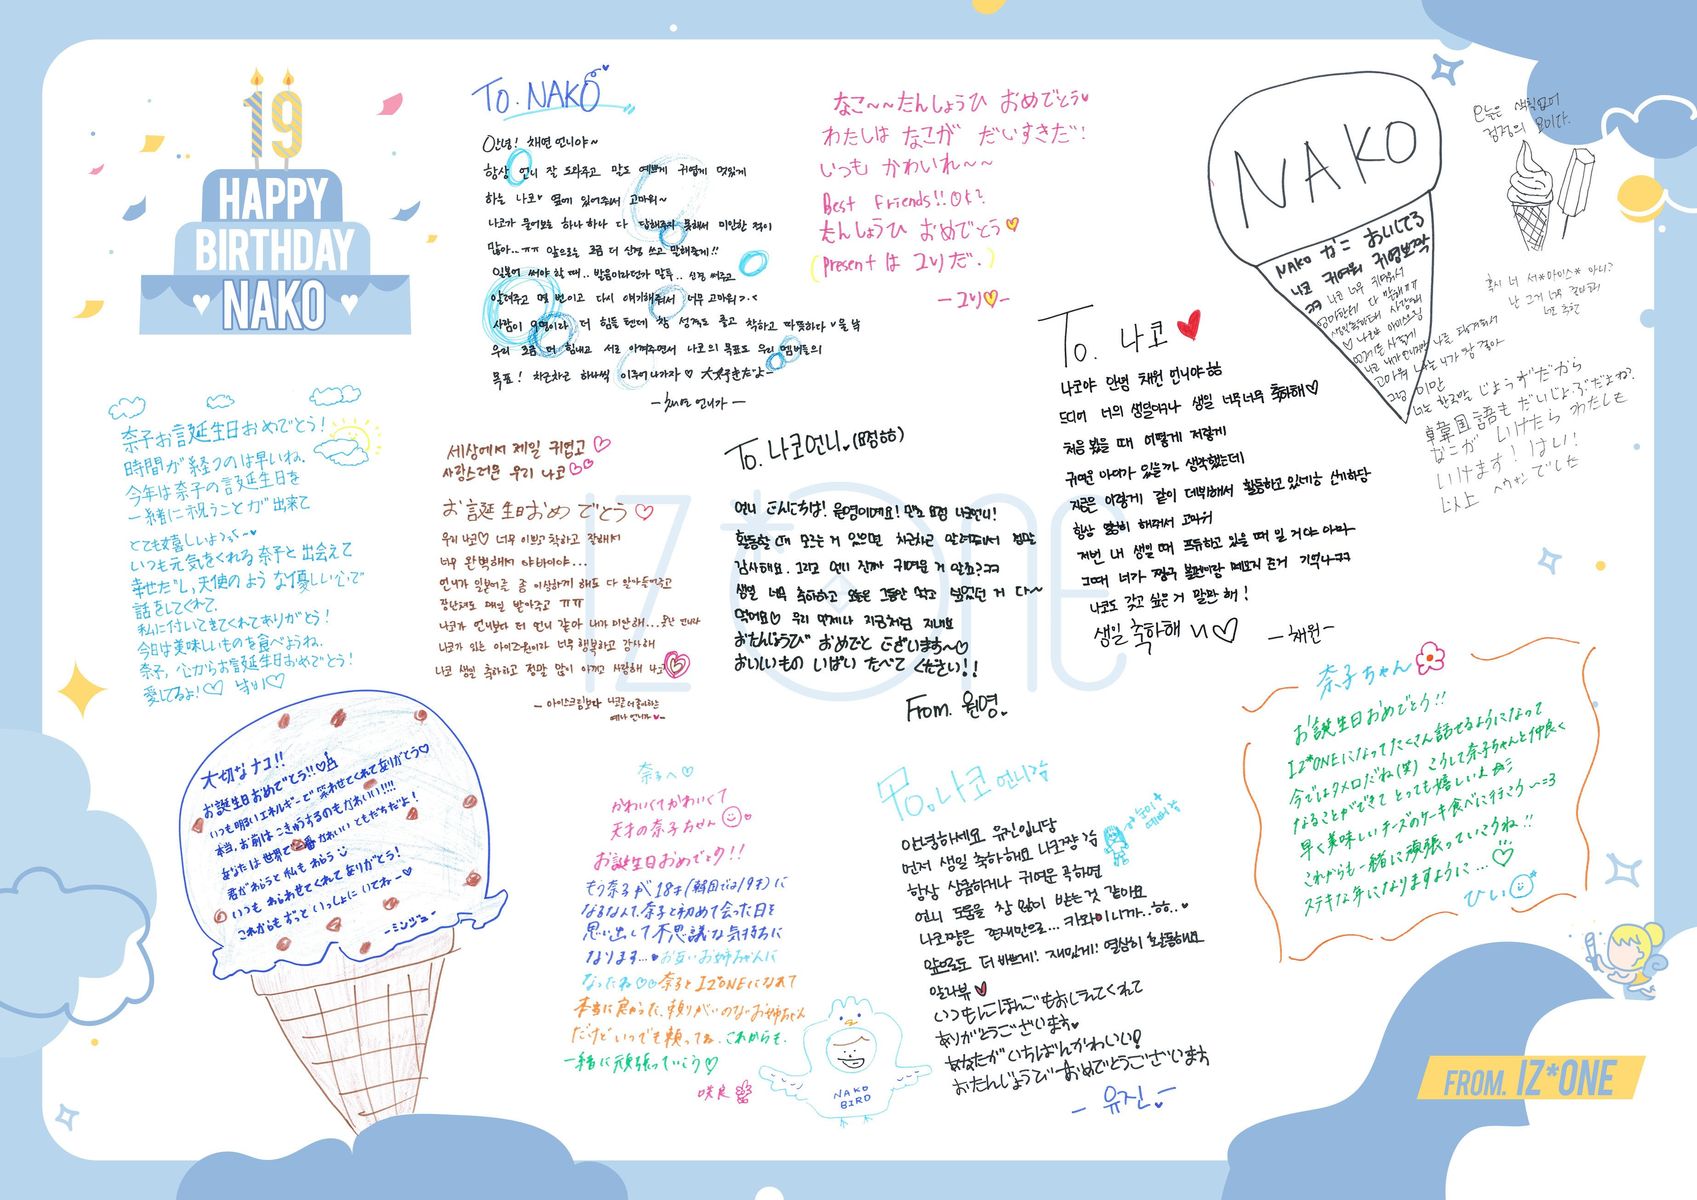 19
HAPPY
BIRTHDAY
NAKO
To. NAKO
안녕! 채연 언니야~
항상 언니 잘 도와주고 말도 예쁘게 귀엽게 멋있게
하는 나코♥ 옆에 있어줘서 고마워~
나코가 물어보는 하나하나 다 답해주지 못해서 미안한 적이
많아..ㅠㅠ 앞으로는 조금 더 신경 쓰고 말해줄게!!
일본어 써야 할 때.. 발음이라던가 말투.. 신경 써주고
알려주고 몇 번이고 다시 얘기해줘서 너무 고마워>.<
사람이 9명이라 더 힘들 텐데 참 성격도 좋고 착하고 따뜻하다
우리 조금 더 힘내고 서로 아껴주면서 나코의 목표도 우리 멤버들의
목표! 차근차근 하나씩 이루어나가자♡ 大好きだよ~
- 채연 언니가 -
なこ~~たんしょうひ おめでとう♥
わたしは なこが だいすきだ!
いつも かわいれ~~
Best Friends!! OK?
たんしょうひ おめでとう♡
(Present は 그리だ.)
NAKO
NAKO なこ おいしてる
나코 귀여워 귀염뽀짝
오늘은 색칠없어
검정의 날이다.
혹시 너 서*아이스* 아니?
韓国語も だいじょぶだよね?
なこが いけたら わたしも
いけます! はい!
以上
奈子お誕生日おめでとう!
時間が経つのは早いね.
今年は奈子の誕生日を
一緒に祝うことが出来て
とても嬉しいよ
いつも元気をくれる奈子と出会えて
幸せだし,天使のような優しい心で
話をしてくれて.
私に付いてきてくれてありがとう!
今日は美味しいものを食べようね.
奈子,心からお誕生日おめでとう!
愛してるよ!♡
세상에서 제일 귀엽고♡
사랑스러운 우리 나코♡♡
お誕生日おめでとう♡
우리 나코♡ 너무 이쁘고 착하고 잘해서
너무 완벽해서 야바이야...
언니가 일본어를 좀 이상하게 해도 다 알아들어주고
장난쳐도 매일 받아주고 ㅠㅠ
나코가 언니보다 더 언니 같아 내가 미안해...
나코가 있는 아이즈원이라 너무 행복하고 감사해
나코 생일 축하하고 정말 많이 아끼고 사랑해 나코♡
- 아이스크림보다 나코를 더 좋아하는
예나 언니가♥-
To. 나코언니♥(요정ㅎㅎ)
언니 こんにちは! 원영이예요! 만쥬 요정 나코언니!
활동할 때 모르는 거 있으면 차근차근 알려줘서 정말
감사해요. 그리고 언니 진짜 귀여운 거 알죠?ㅋㅋ
생일 너무 축하하고 오늘은 그동안 먹고 싶었던 거 다~
먹어요♡ 우리 언제나 지금처럼 지내요
おたんじょうび おめでと ございます~♡
おいしいもの いぱい たべて ください!!
From. 원영.
To. 나코♥
나코야 안녕 채원 언니야ㅎㅎ
드디어 너의 생일이구나 생일 너무너무 축하해♡
처음 봤을 때 어떻게 저렇게
귀여운 아이가 있을까 생각했는데
지금은 이렇게 같이 데뷔해서 활동하고 있네ㅎㅎ 신기하당
항상 열심히 해줘서 고마워
저번 내 생일 때 프듀하고 있을 때 일 거야 아마
그때 너가 짱구 볼펜이랑 메모지 준거 기억나ㅋㅋ
나코도 갖고 싶은 거 말만 해!
생일 축하해 ♡
-채원-
大切なナコ!!
お誕生日おめでとう!!♡
いつも明るいエネルギーで笑わせてくれてありがとう♡
本当、お前はこきゅうするのもかわいい!!!!
あなたは世界で一番かわいい ともだちだよ!
君がわらうと私もわらう
いつも わらわせてくれて ありがとう!
これからも ずっと いっしょに いてねー♡
-ミンジュ-
奈子へ♡
かわいくてかわいくて
天才の奈子ちゃん
お誕生日おめでとう!!
もう奈子が18才(韓国では19才)に
なるなんて、奈子と初めて会った日を
思い出して不思議な気持ちに
なります...♥お互いお姉ちゃんに
なったね♡♡奈子とIZ*ONEになれて
本当に良かった、頼りがいのないお姉ちゃん
だけどいつでも頼ってね。これからも、
一緒に頑張っていこう♡
咲良
NAKO
BIRD
To. 나코 언니
안녕하세요 유진입니당
먼저 생일 축하해요 나코짱
항상 상큼하거나 귀여운 곡하면
언니 도움을 참 많이 받는 것 같아요
나코짱은 존재만으로... 카와이니까..ㅎㅎ.♥
앞으로도 더 바쁘게! 재밌게! 열심히 활동해요
알라뷰♥
いつもにほんごもおしえてくれて
ありがとうございます♥
あなたがいちばんかわいい!
おたんじょうび おめでとうございます
- 유진 -
奈子ちゃん
お誕生日おめでとう!!
IZ*ONEになってたくさん話せるようになって
今ではタメ口だね(笑) こうして奈子ちゃんと仲良く
なることができて とっても嬉しいよ
早く美味しいチーズのケーキ食べに行こう~=3
これからも一緒に頑張っていこうね!!
ステキな年になりますように...♡
ひぃ
IZ*ONE
FROM. IZ*ONE